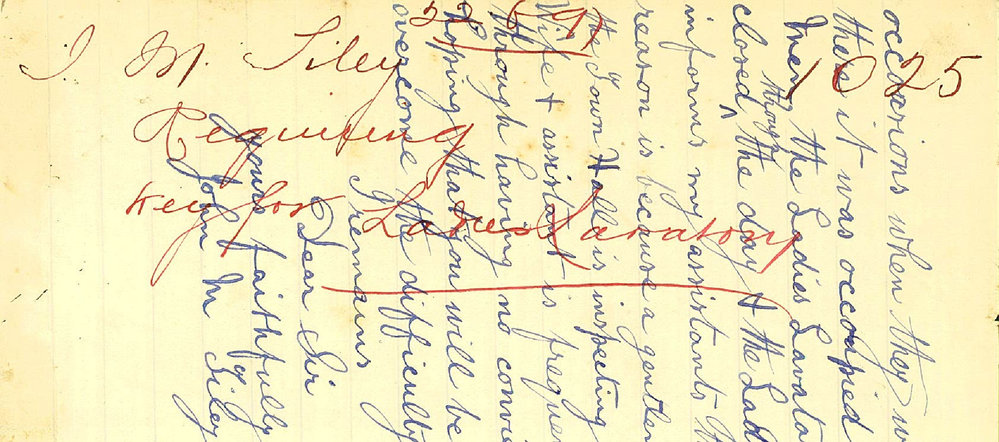 22 6 97
J. M. Siley
1025
Requiring
Key for Ladies Lavatory
occasions when they
there it was occupied
Men the Ladies Lavato
though
closed the day & the Lad
informs my assistants
reason is because a gentlem
the Town Hall is inspecting
Wife & assistant is freque
through having no convie
Hoping that you will be
overcome the difficulty
I remains
Dear Sir
yours faithfully
John M Siley